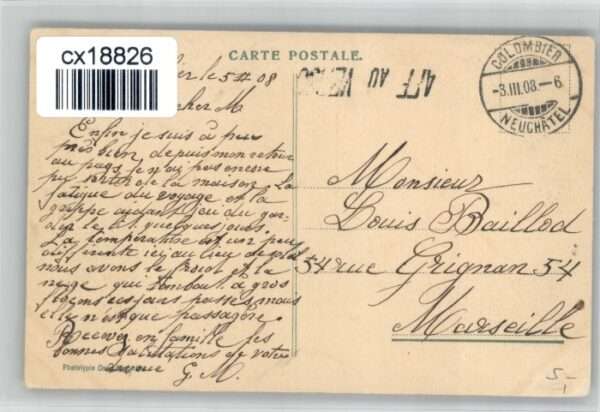 cx18826
CARTE POSTALE.
le 5 08
cher M
AFF AU VERSO
COLOMBIER
-3.III.08.-6
NEUCHÂTEL
Enfin je suis à peu
près bien, depuis mon retour
au pays je n'ai pas encore
pu sortir de la maison. La
fatigue du voyage et la
grippe ayant
le lit quelques jours.
La température est un peu
différente ici au lieu de
nous avons le froid et la
neige qui tombait à gros
flocons ces jours passés, mais
elle n'est que passagère.
Recevez en famille les
bonnes Salutations de votre
G. M.
Monsieur
Louis Baillod
54 rue Grignan 54
Marseille
Phototypie
5.-